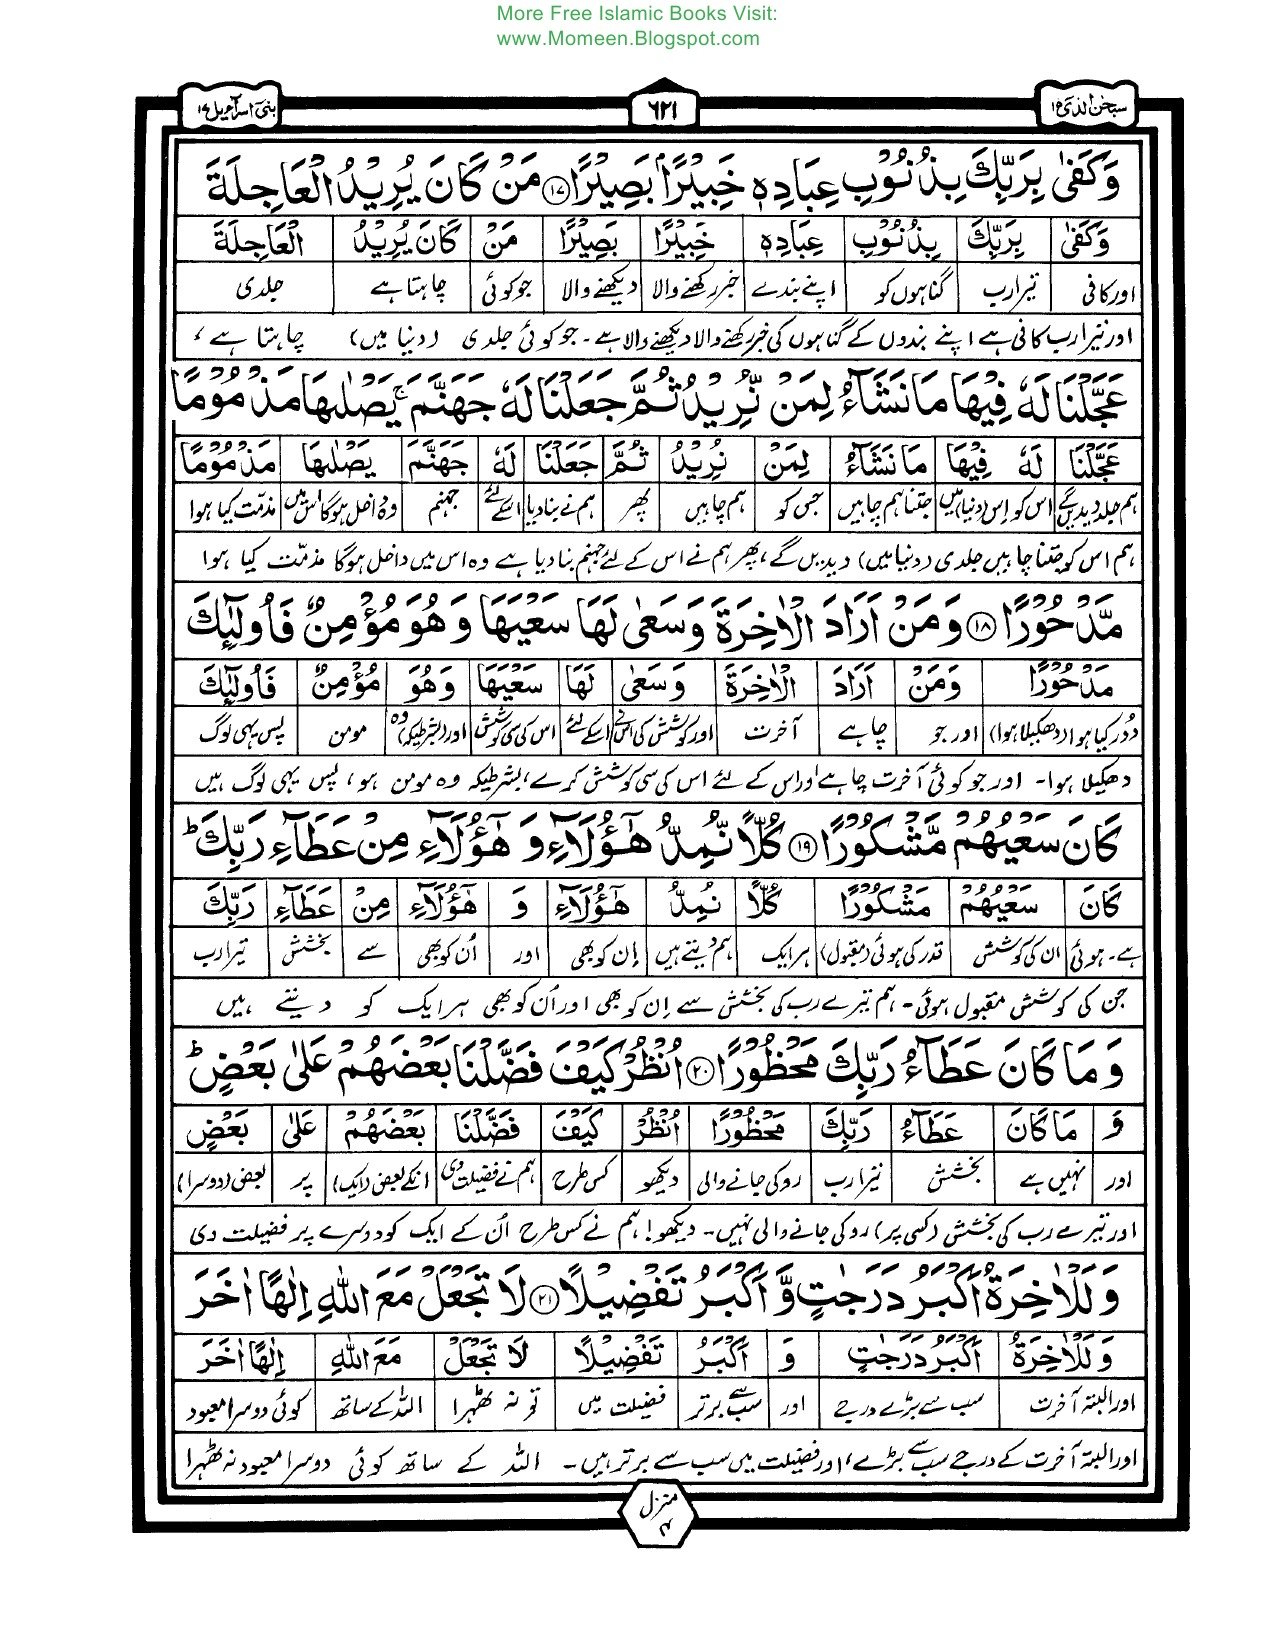 More Free Islamic Books Visit:
www.Momeen.Blogspot.com
سبحٰن الذی ١٥
٦٢١
بنی اسرآءیل ١٧
وَكَفٰى بِرَبِّكَ بِذُنُوْبِ عِبَادِهٖ خَبِيْرًۢا بَصِيْرًا ۝١٧ مَنْ كَانَ يُرِيْدُ الْعَاجِلَةَ
وَكَفٰى بِرَبِّكَ بِذُنُوْبِ عِبَادِهٖ خَبِيْرًا بَصِيْرًا مَنْ كَانَ يُرِيْدُ الْعَاجِلَةَ
اور کافی تیرا رب گناہوں کو اپنے بندے خبر رکھنے والا دیکھنے والا جو کوئی چاہتا ہے جلدی
اور تیرا رب کافی ہے اپنے بندوں کے گناہوں کی خبر رکھنے والا دیکھنے والا ہے۔ جو کوئی جلدی (دنیا میں) چاہتا ہے،
عَجَّلْنَا لَهٗ فِيْهَا مَا نَشَآءُ لِمَنْ نُّرِيْدُ ثُمَّ جَعَلْنَا لَهٗ جَهَنَّمَ ۚ يَصْلٰىهَا مَذْمُوْمًا
عَجَّلْنَا لَهٗ فِيْهَا مَا نَشَآءُ لِمَنْ نُرِيْدُ ثُمَّ جَعَلْنَا لَهٗ جَهَنَّمَ يَصْلٰىهَا مَذْمُوْمًا
ہم جلد دیدیں گے اس کو اس دنیا میں جتنا ہم چاہیں جس کو ہم چاہیں پھر ہم نے بنا دیا اسکے لئے جہنم وہ داخل ہوگا اس میں مذمت کیا ہوا
ہم اس کو جتنا چاہیں جلدی (دنیا میں) دیدیں گے، پھر ہم نے اس کے لئے جہنم بنا دیا ہے وہ اس میں داخل ہوگا مذمّت کیا ہوا
مَّدْحُوْرًا ۝١٨ وَمَنْ اَرَادَ الْاٰخِرَةَ وَسَعٰى لَهَا سَعْيَهَا وَهُوَ مُؤْمِنٌ فَاُولٰٓئِكَ
مَدْحُوْرًا وَمَنْ اَرَادَ الْاٰخِرَةَ وَسَعٰى لَهَا سَعْيَهَا وَهُوَ مُؤْمِنٌ فَاُولٰٓئِكَ
دور کیا ہوا (دھکیلا ہوا) اور جو چاہے آخرت اور کوشش کی اس نے اسکے لئے اس کی سی کوشش اور (بشرطیکہ) وہ مومن پس یہی لوگ
دھکیلا ہوا۔ اور جو کوئی آخرت چاہے اور اس کے لئے اس کی سی کوشش کرے، بشرطیکہ وہ مومن ہو، پس یہی لوگ ہیں
كَانَ سَعْيُهُمْ مَّشْكُوْرًا ۝١٩ كُلًّا نُّمِدُّ هٰٓؤُلَآءِ وَ هٰٓؤُلَآءِ مِنْ عَطَآءِ رَبِّكَ ؕ
كَانَ سَعْيُهُمْ مَشْكُوْرًا كُلًّا نُمِدُّ هٰٓؤُلَآءِ وَ هٰٓؤُلَآءِ مِنْ عَطَآءِ رَبِّكَ
ہے۔ ہوئی ان کی کوشش قدر کی ہوئی (مقبول) ہر ایک ہم دیتے ہیں اِن کو بھی اور اُن کو بھی سے بخشش تیرا رب
جن کی کوشش مقبول ہوئی۔ ہم تیرے رب کی بخشش سے اِن کو بھی اور اُن کو بھی ہر ایک کو دیتے ہیں
وَمَا كَانَ عَطَآءُ رَبِّكَ مَحْظُوْرًا ۝٢٠ اُنْظُرْ كَيْفَ فَضَّلْنَا بَعْضَهُمْ عَلٰى بَعْضٍ ؕ
وَ مَا كَانَ عَطَآءُ رَبِّكَ مَحْظُوْرًا اُنْظُرْ كَيْفَ فَضَّلْنَا بَعْضَهُمْ عَلٰى بَعْضٍ
اور نہیں ہے بخشش تیرا رب روکی جانے والی دیکھو کس طرح ہم نے فضیلت دی انکے بعض (ایک) پر بعض (دوسرا)
اور تیرے رب کی بخشش (کسی پر) روکی جانے والی نہیں۔ دیکھو! ہم نے کس طرح اُن کے ایک کو دوسرے پر فضیلت دی
وَلَلْاٰخِرَةُ اَكْبَرُ دَرَجٰتٍ وَّ اَكْبَرُ تَفْضِيْلًا ۝٢١ لَا تَجْعَلْ مَعَ اللّٰهِ اِلٰهًا اٰخَرَ
وَلَلْاٰخِرَةُ اَكْبَرُ دَرَجٰتٍ وَ اَكْبَرُ تَفْضِيْلًا لَا تَجْعَلْ مَعَ اللّٰهِ اِلٰهًا اٰخَرَ
اور البتہ آخرت سب سے بڑے درجے اور سب سے برتر فضیلت میں تو نہ ٹھہرا اللہ کے ساتھ کوئی دوسرا معبود
اور البتہ آخرت کے درجے سب سے بڑے، اور فضیلت میں سب سے برتر ہیں۔ اللہ کے ساتھ کوئی دوسرا معبود نہ ٹھہرا
منزل ۴